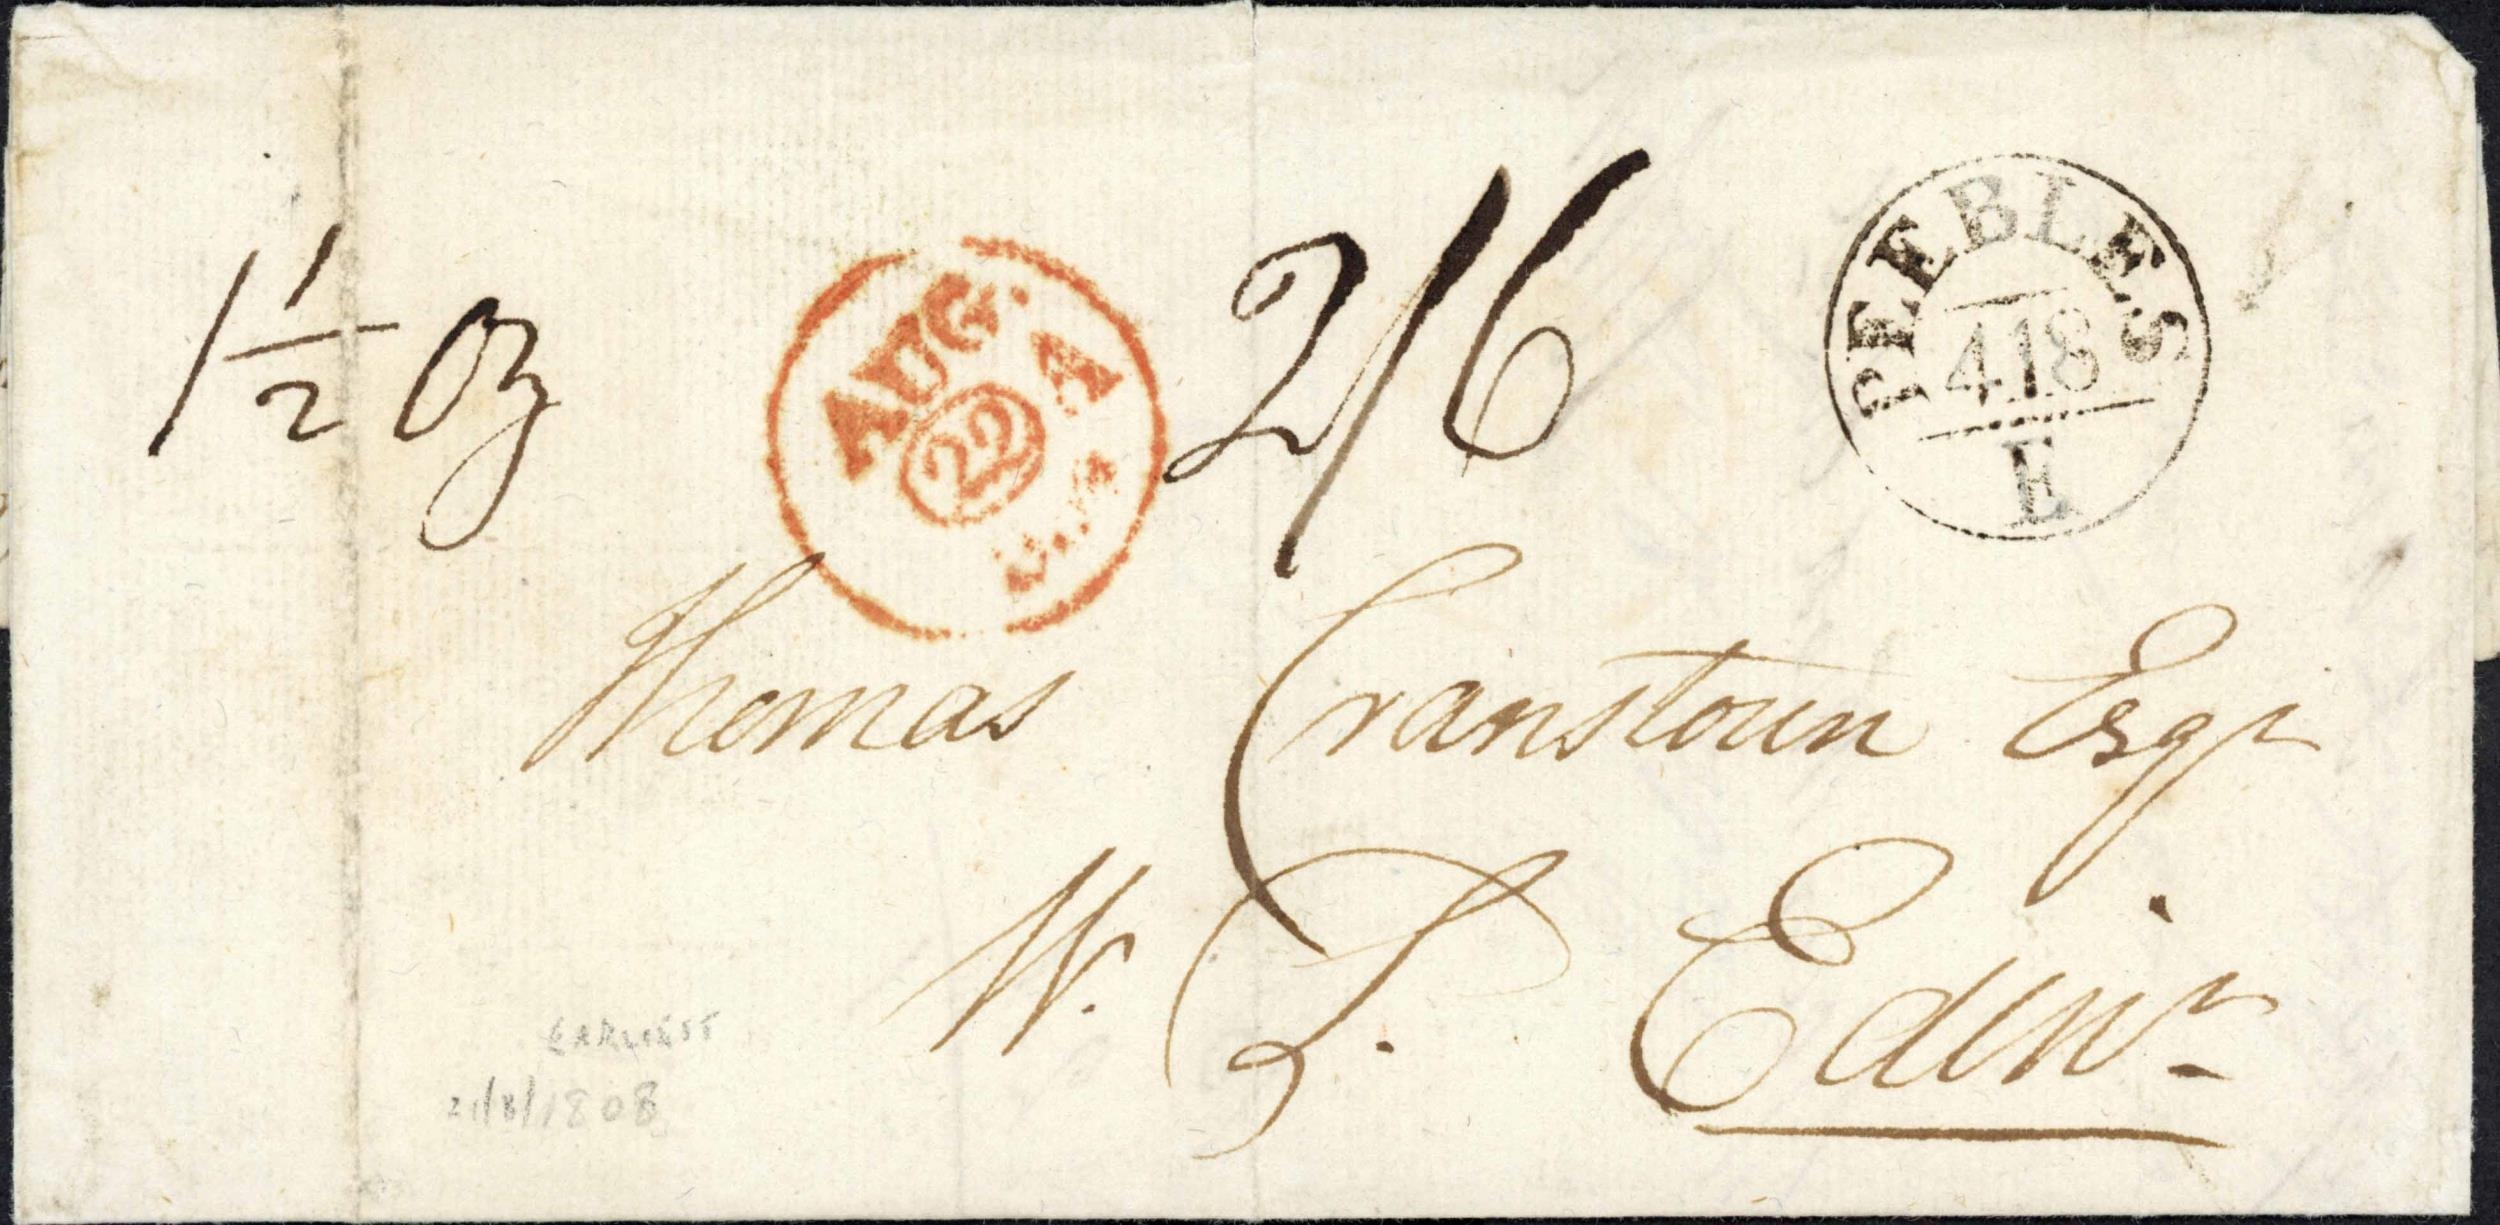 1 1/2 Oz
AUG.
22 A
2/6
PEEBLES
418
E
Thomas Cranstoun Esqr
W. S. Edinr
EARLIEST
21/8/1808